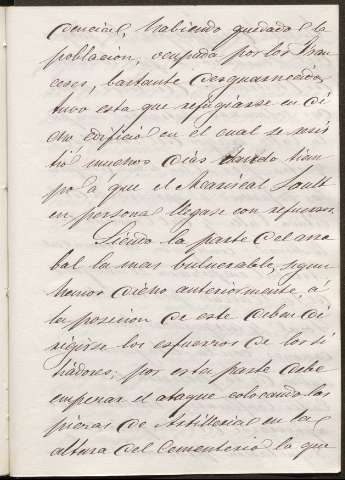 dencial, habiendo quedado la
poblacion, ocupada por los Fran
ceses, bastante desguarnecida,
tuvo esta que refugiarse en di
cho edificio en el cual se resis
tió muchos dias dando tiem
po á que el Mariscal Soult
en persona llegase con refuerzos.
Siendo la parte del arra
bal la mas vulnerable, segun
hemos dicho anteriormente, á
la posesion de este deben di
rigirse los esfuerzos de los si
tiadores; por esta parte debe
empezar el ataque colocando las
piezas de Artilleria en la
altura del Cementerio la que